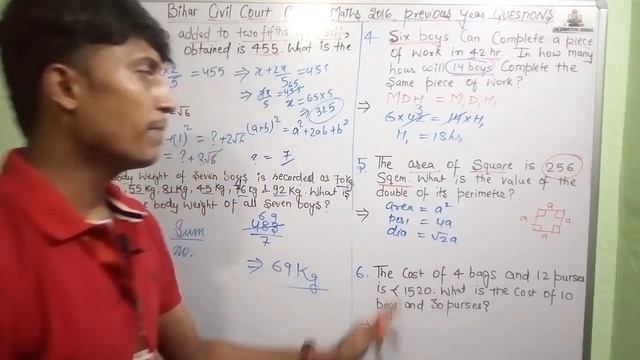 Bihar Civil Court Maths 2016 previous year QUESTIONS
added to two fifths of itself,
obtained is 455. What is the
x 2/5 = 455 ⇒ x + 2x/5 = 455
x = 65 x 5
325
+(1)² = ? + 2√6 (a+b)² = a² + 2ab + b²
= ? + 2√6 ? = 7
body weight of seven boys is recorded as 70 kg,
55 kg, 81 kg, 45 kg, 76 kg & 92 kg. What is
body weight of all seven boys?
Sum
no.
69
483
7
⇒ 69 Kg
4. Six boys Can Complete a piece
of work in 42 hr. In how many
hour will 14 boys Complete the
Same piece of work?
⇒ MDH = M₁D₁H₁
6 x 42 = 14 x H₁
H₁ = 18 hs
5. The area of Square is 256
Sqcm. What is the value of the
double of its perimeter?
⇒ area = a²
peri = 4a
dia = √2a
a
a
a
a
6. The Cost of 4 bags and 12 purses
is ₹ 1520. What is the Cost of 10
bags and 30 purses?
⇒